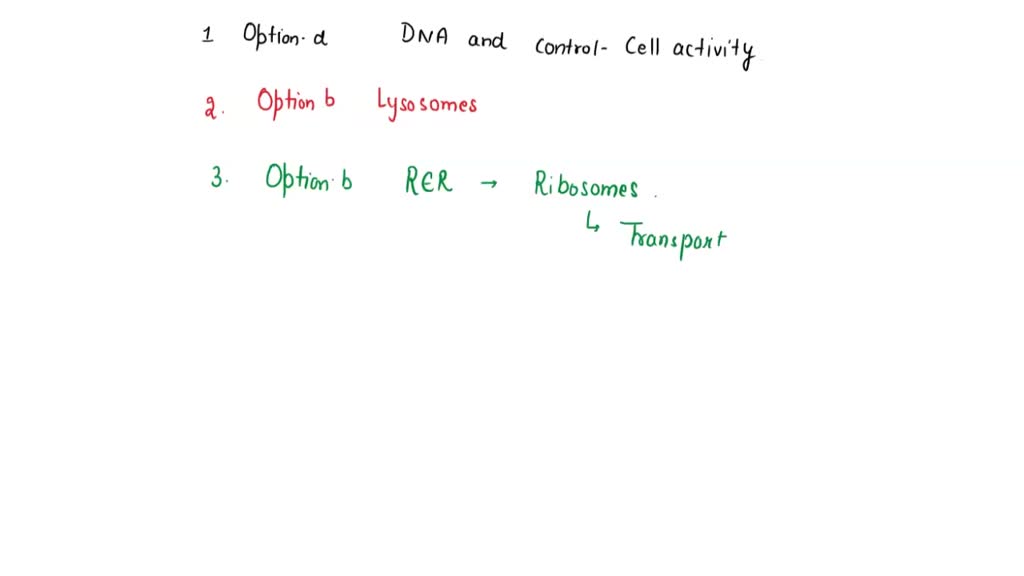 1 Option. d DNA and control- Cell activity
2. Option b Lysosomes
3. Option. b RER → Ribosomes.
↳ Transport